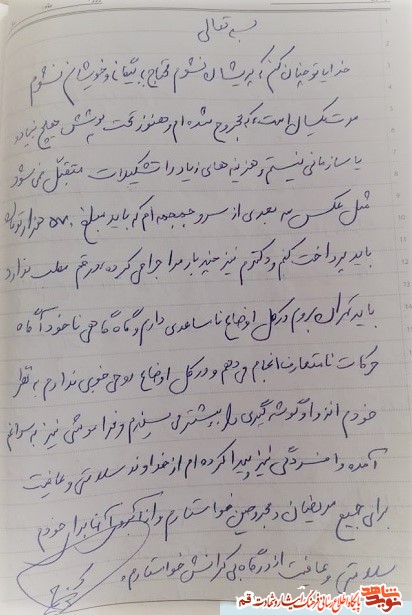 بسمه تعالی
خدایا تو چنان کن که پریشان نشوم محتاج بیگانه و خویشان نشوم
مدت یکسال است که مجروح شده ام و هنوز تحت پوشش هیچ نهاد
یا سازمانی نیستم و هزینه های زیاد را تشکیلات متقبل نمی شود
مثل عکس سه بعدی از سر و جمجمه ام که باید مبلغ ۵۸۰ هزار تومان
باید پرداخت کنم و دکترم نیز چند بار مرا جراحی کرده در قم مطب ندارد
باید تهران بروم در کل اوضاع نامساعدی دارم و گاه گاهی ناخودآگاه
حرکات نامتعارف انجام می دهم و در کل اوضاع روحی خوبی ندارم به نظر
خودم انزوا و گوشه گیری را بیشتر می پسندم و فراموشی نیز به سراغم
آمده و افسردگی نیز پیدا کرده ام از خداوند سلامتی و عافیت
برای جمیع مریضان و مجروحین خواستارم و از برای خودم
سلامتی و عافیت از درگاه بی کرانش خواستارم
نوید شاهد
پایگاه اطلاع رسانی فرهنگ ایثار و شهادت قم